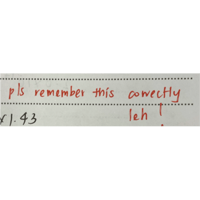 pls remember this correctly
leh !
x1.43